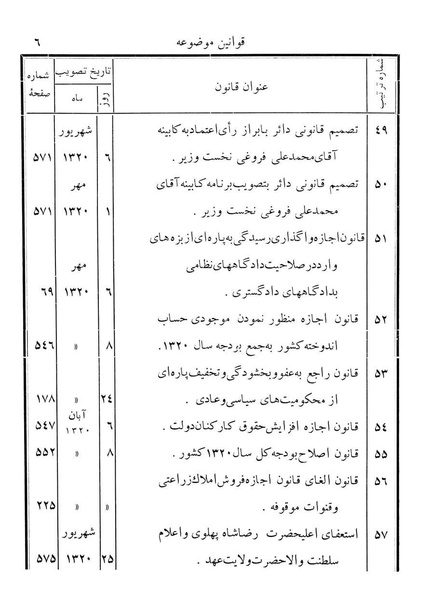 قوانین موضوعه
۶
شماره ترتیب
عنوان قانون
تاریخ تصویب
روز
ماه
شماره صفحهٔ
۴۹ تصمیم قانونی دائر بابراز رأی اعتماد به کابینه شهریور
آقای محمدعلی فروغی نخست وزیر . ۶ ۱۳۲۰ ۵۷۱
۵۰ تصمیم قانونی دائر بتصویب برنامه کابینه آقای مهر
محمدعلی فروغی نخست وزیر . ۱ ۱۳۲۰ ۵۷۱
۵۱ قانون اجازه واگذاری رسیدگی به پاره‌ای از بزه‌های
وارد در صلاحیت دادگاههای نظامی مهر
بدادگاههای دادگستری . ۶ ۱۳۲۰ ۶۹
۵۲ قانون اجازه منظور نمودن موجودی حساب
اندوخته کشور به جمع بردجه سال ۱۳۲۰ . ۸ » ۵۴۶
۵۳ قانون راجع به عفو و بخشودگی و تخفیف پاره‌ای
از محکومیت‌های سیاسی و عادی . ۲۴ » ۱۷۸
۵۴ قانون اجازه افزایش حقوق کارکنان دولت . ۶ آبان ۱۳۲۰ ۵۴۷
۵۵ قانون اصلاح بودجه کل سال ۱۳۲۰ کشور . ۸ » ۵۵۲
۵۶ قانون الغای قانون اجازه فروش املاک زراعتی
و قنوات موقوفه . » » ۲۲۵
۵۷ استعفای اعلیحضرت رضاشاه پهلوی و اعلام شهریور
سلطنت والاحضرت ولایت عهد . ۲۵ ۱۳۲۰ ۵۷۵